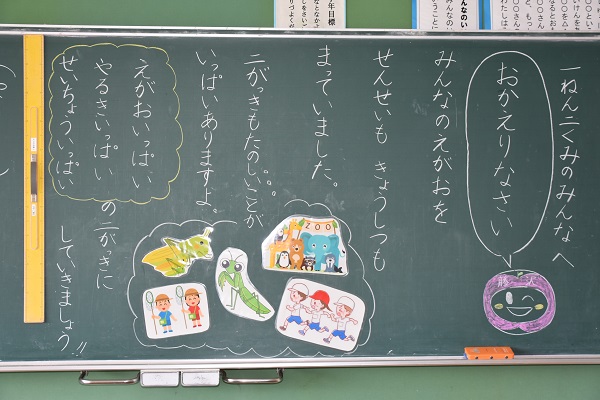 一ねん二くみのみんなへ
おかえりなさい
みんなのえがおを
せんせいも きょうしつも
まっていました。
二がっきもたのしいことが
いっぱいありますよ。
えがおいっぱい
やるきいっぱい
せいちょういっぱい
の二がっきに
していきましょう!!
ZOO